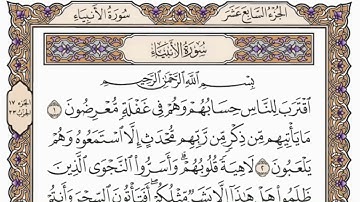 الجزء السابع عشر
سورة الأنبياء
سُورَةُ الأَنبِيَاءِ
بِسْمِ اللَّهِ الرَّحْمَٰنِ الرَّحِيمِ
اقْتَرَبَ لِلنَّاسِ حِسَابُهُمْ وَهُمْ فِي غَفْلَةٍ مُّعْرِضُونَ ١
مَا يَأْتِيهِم مِّن ذِكْرٍ مِّن رَّبِّهِم مُّحْدَثٍ إِلَّا اسْتَمَعُوهُ وَهُمْ
يَلْعَبُونَ ٢ لَاهِيَةً قُلُوبُهُمْ وَأَسَرُّوا النَّجْوَى الَّذِينَ
ظَلَمُوا هَلْ هَٰذَا إِلَّا بَشَرٌ مِّثْلُكُمْ أَفَتَأْتُونَ السِّحْرَ وَأَنتُمْ
الجزء ١٧